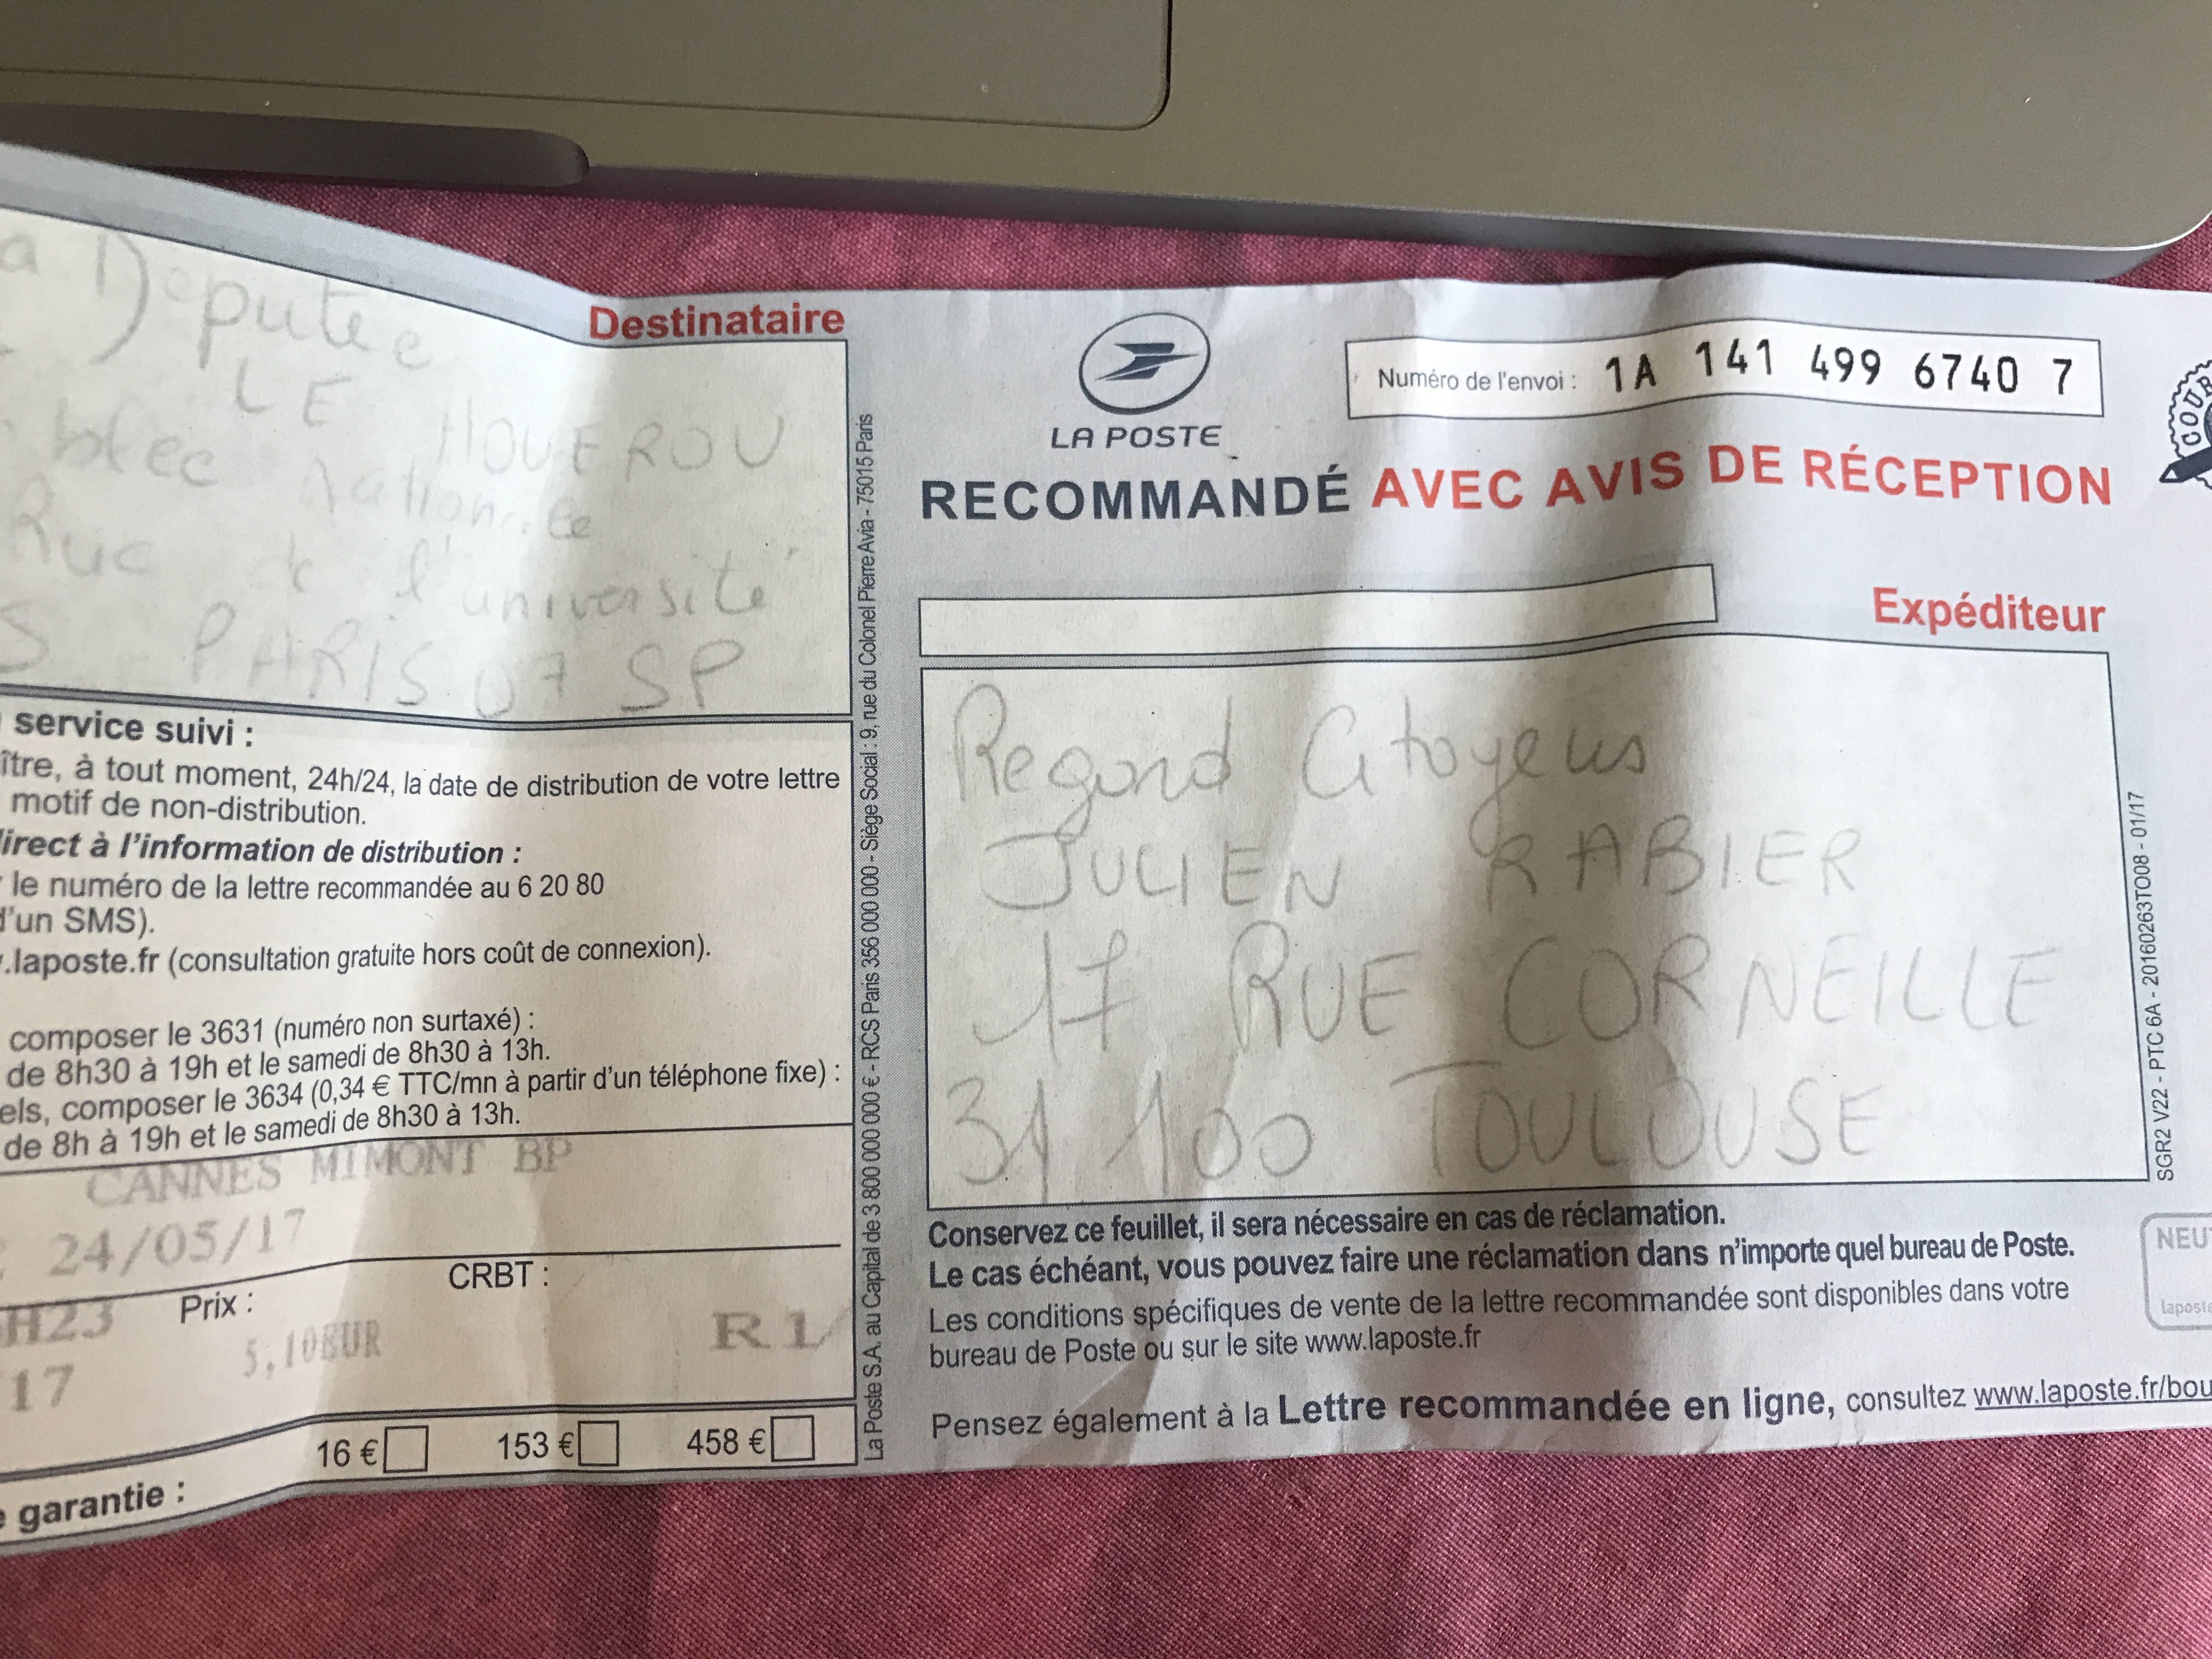 a Deputée
LE HOUEROU
blée Nationale
Rue de l'université
S PARIS 07 SP
Destinataire
service suivi :
ître, à tout moment, 24h/24, la date de distribution de votre lettre
motif de non-distribution.
direct à l'information de distribution :
le numéro de la lettre recommandée au 6 20 80
d'un SMS).
.laposte.fr (consultation gratuite hors coût de connexion).
composer le 3631 (numéro non surtaxé) :
de 8h30 à 19h et le samedi de 8h30 à 13h.
els, composer le 3634 (0,34 € TTC/mn à partir d'un téléphone fixe) :
de 8h à 19h et le samedi de 8h30 à 13h.
CANNES MIMONT BP
24/05/17
CRBT :
H23 Prix :
5,10EUR R1
17
16 € 153 € 458 €
garantie :
La Poste S.A. au Capital de 3 800 000 000 € - RCS Paris 356 000 000 - Siège Social : 9, rue du Colonel Pierre Avia - 75015 Paris
LA POSTE
Numéro de l'envoi : 1A 141 499 6740 7
RECOMMANDÉ AVEC AVIS DE RÉCEPTION
Expéditeur
Regard Citoyens
JULIEN RABIER
17 RUE CORNEILLE
31100 TOULOUSE
SGR2 V22 - PTC 6A - 20160263TO08 - 01/17
Conservez ce feuillet, il sera nécessaire en cas de réclamation.
Le cas échéant, vous pouvez faire une réclamation dans n'importe quel bureau de Poste.
Les conditions spécifiques de vente de la lettre recommandée sont disponibles dans votre
bureau de Poste ou sur le site www.laposte.fr
Pensez également à la Lettre recommandée en ligne, consultez www.laposte.fr/bou
COUR
NEU
laposte